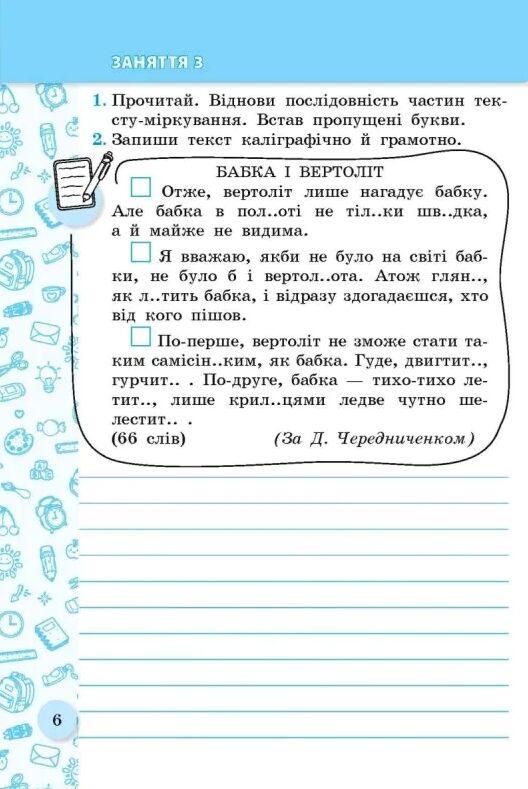 ЗАНЯТТЯ 3
1. Прочитай. Віднови послідовність частин тек-
сту-міркування. Встав пропущені букви.
2. Запиши текст каліграфічно й грамотно.
БАБКА І ВЕРТОЛІТ
Отже, вертоліт лише нагадує бабку.
Але бабка в пол..оті не тіл..ки шв..дка,
а й майже не видима.
Я вважаю, якби не було на світі баб-
ки, не було б і вертол..ота. Атож глян..,
як л..тить бабка, і відразу здогадаєшся, хто
від кого пішов.
По-перше, вертоліт не зможе стати та-
ким самісін..ким, як бабка. Гуде, двигтит..,
гурчит.. . По-друге, бабка — тихо-тихо ле-
тит.., лише крил..цями ледве чутно ше-
лестит.. .
(66 слів) (За Д. Чередниченком)
6